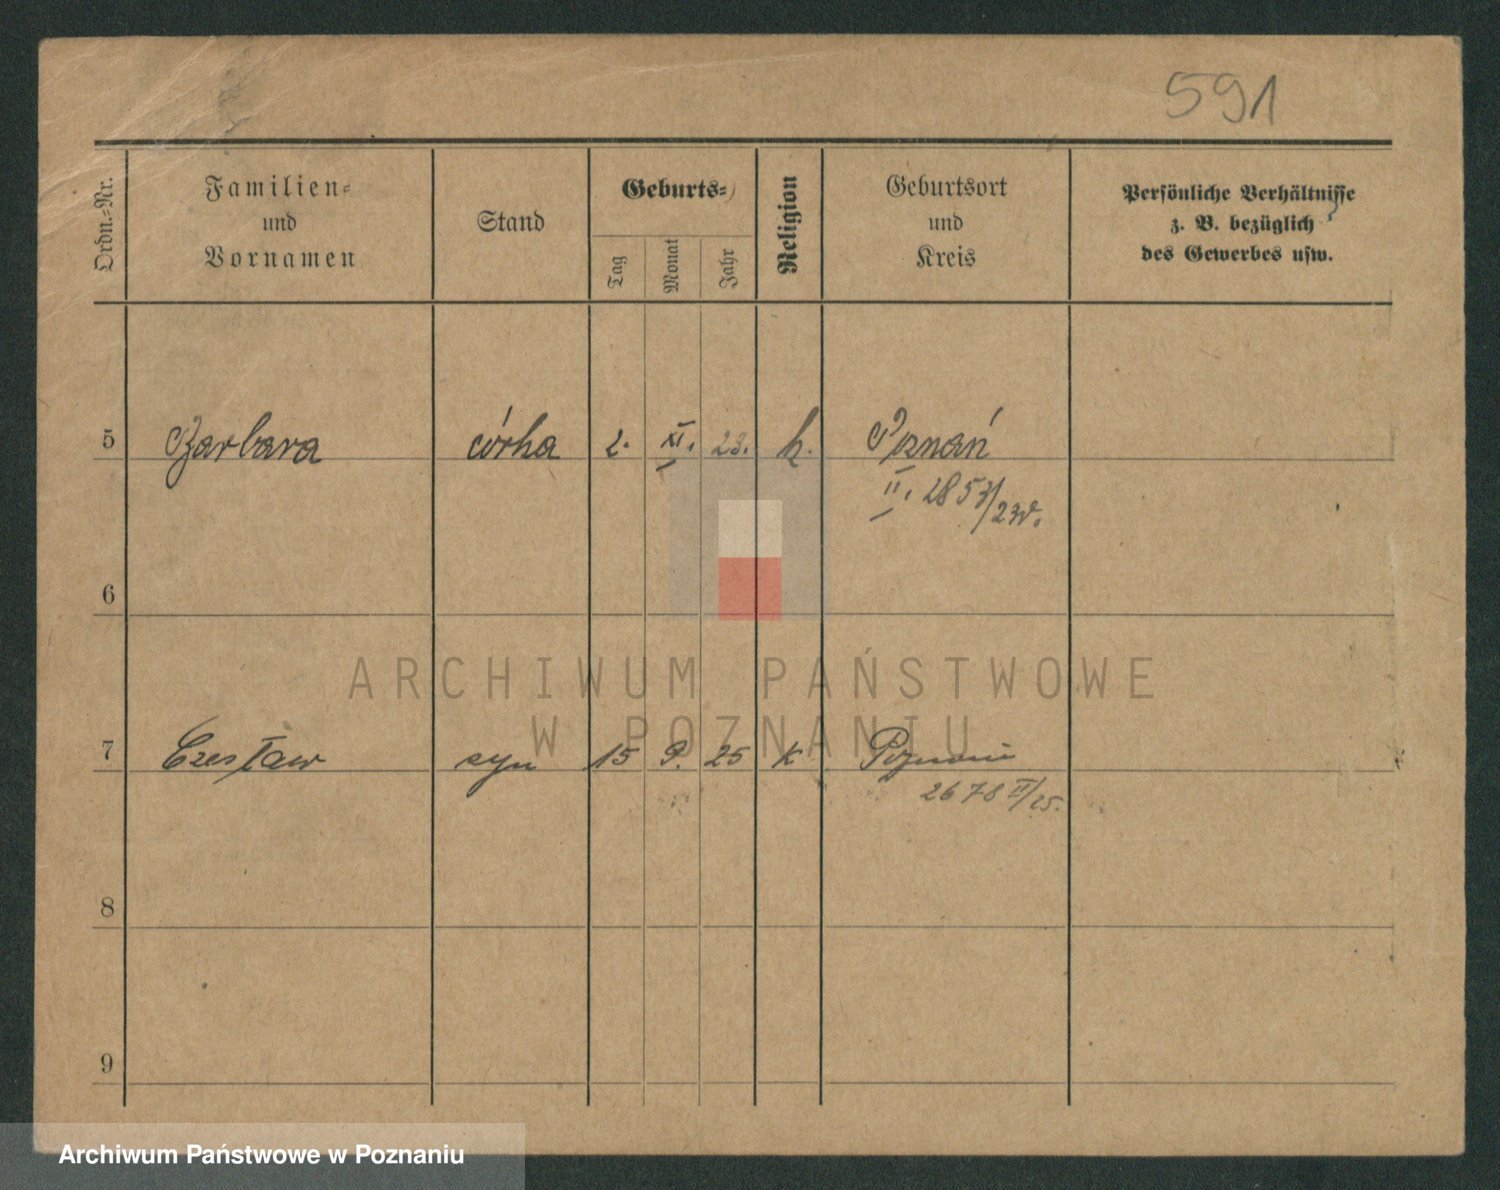 591
Ordn.-Nr.
Familien-
und
Vornamen
Stand
Geburts-
Tag
Monat
Jahr
Religion
Geburtsort
und
Kreis
Persönliche Verhältnisse
z. B. bezüglich
des Gewerbes usw.
5 Barbara córka 2. XI. 23. k. Poznań
II. 2853/23r.
6
ARCHIWUM PAŃSTWOWE
W POZNANIU
7 Czesław syn 15 9. 25 K Poznaniu
2678 II/25.
8
9
Archiwum Państwowe w Poznaniu